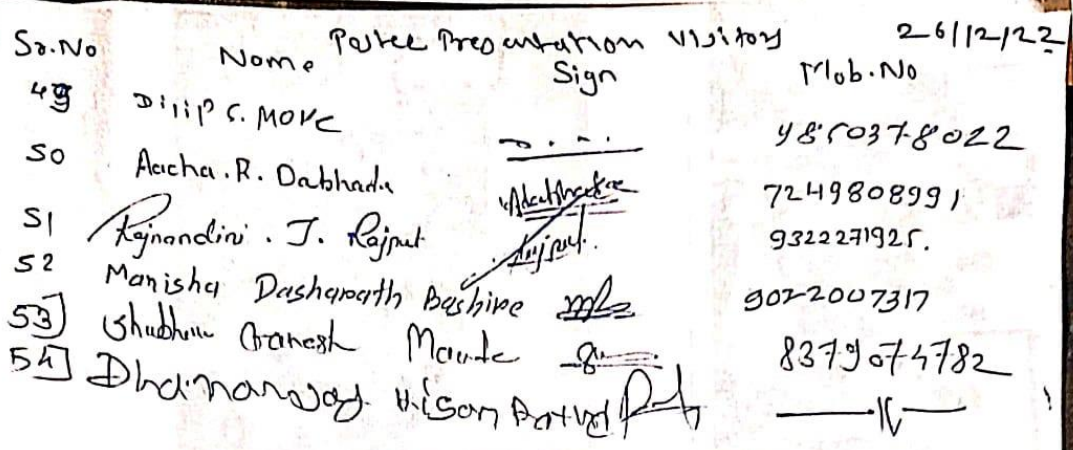 Postee Presentation Visitors 26/12/22
Sr.No Name Sign Mob.No
49 Dilip S. More 9850378022
50 Aacha. R. Dabhade 7249808991
51 Rajnandini. J. Rajput Rajput. 9322271925.
52 Manisha Dasharath Bashire 9022007317
53] Shubham Ganesh Maude 8379074782
54] Dhanaraj Kisan —11—